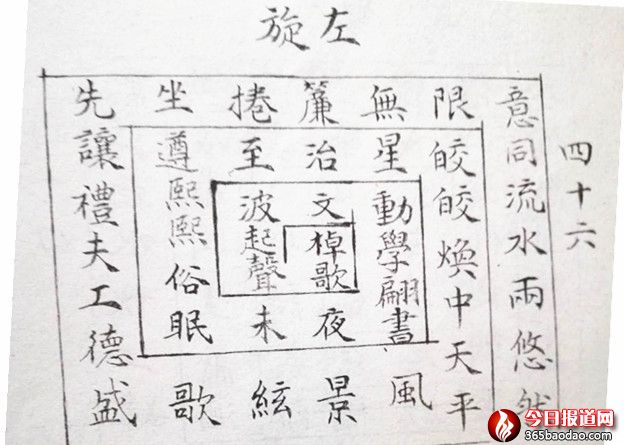 左旋
四十六
意同流水兩悠然
限皎皎煥中天平
無星動學翩書風
簾治文棹歌夜景
捲至波起聲未絃
坐遵熙熙俗眠歌
先讓禮夫工德盛
今日报道网
365baodao.com